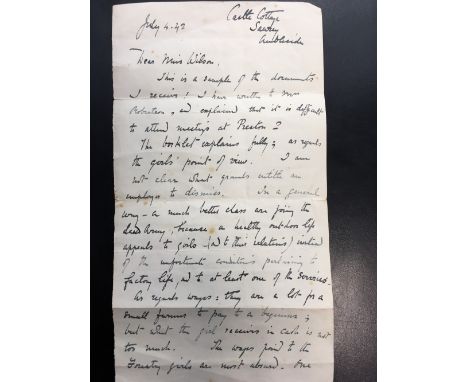 July 4. 42
Castle Cottage
Sawrey
Ambleside
Dear Miss Wilson,
This is a sample of the documents
I receive! I have written to Mrs
Robertson, and explained that it is difficult
to attend meetings at Preston?
The booklet explains fully; as regards
the girls' point of view. I am
not clear what grounds entitle an
employer to dismiss. In a general
way – a much better class are joining the
Land Army; because a healthy outdoor life
appeals to girls – (and to their relations) instead
of the unfortunate conditions pertaining to
factory life, and to at least one of the Services.
As regards wages: they are a lot for a
small farmer to pay to a beginner;
but what the girl receives in cash is not
too much. The wages paid to the
Forestry girls are most absurd. One